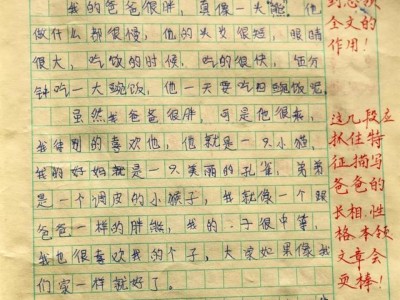 我的爸爸很胖，真像一头熊。他
做什么都很慢，他的头发很短，眼睛
很大，吃饭的时候，吃的很快，五分
钟吃一大碗饭，他一天要吃四碗饭呢。
虽然我爸爸很胖，可是他很
我特别的喜欢他，他就是一只小猫，
我的好妈妈就是一只美丽的孔雀，弟弟
是一个调皮的小猴子，我就像一个跟
爸爸一样的胖熊，我的个子很中等，
我也很喜欢我的个子，大家如果像我
们家一样就好了。
全文的
作用！
这几段应
抓住特
征描写
爸爸的
长相，性
格，本领
文章会
更棒！